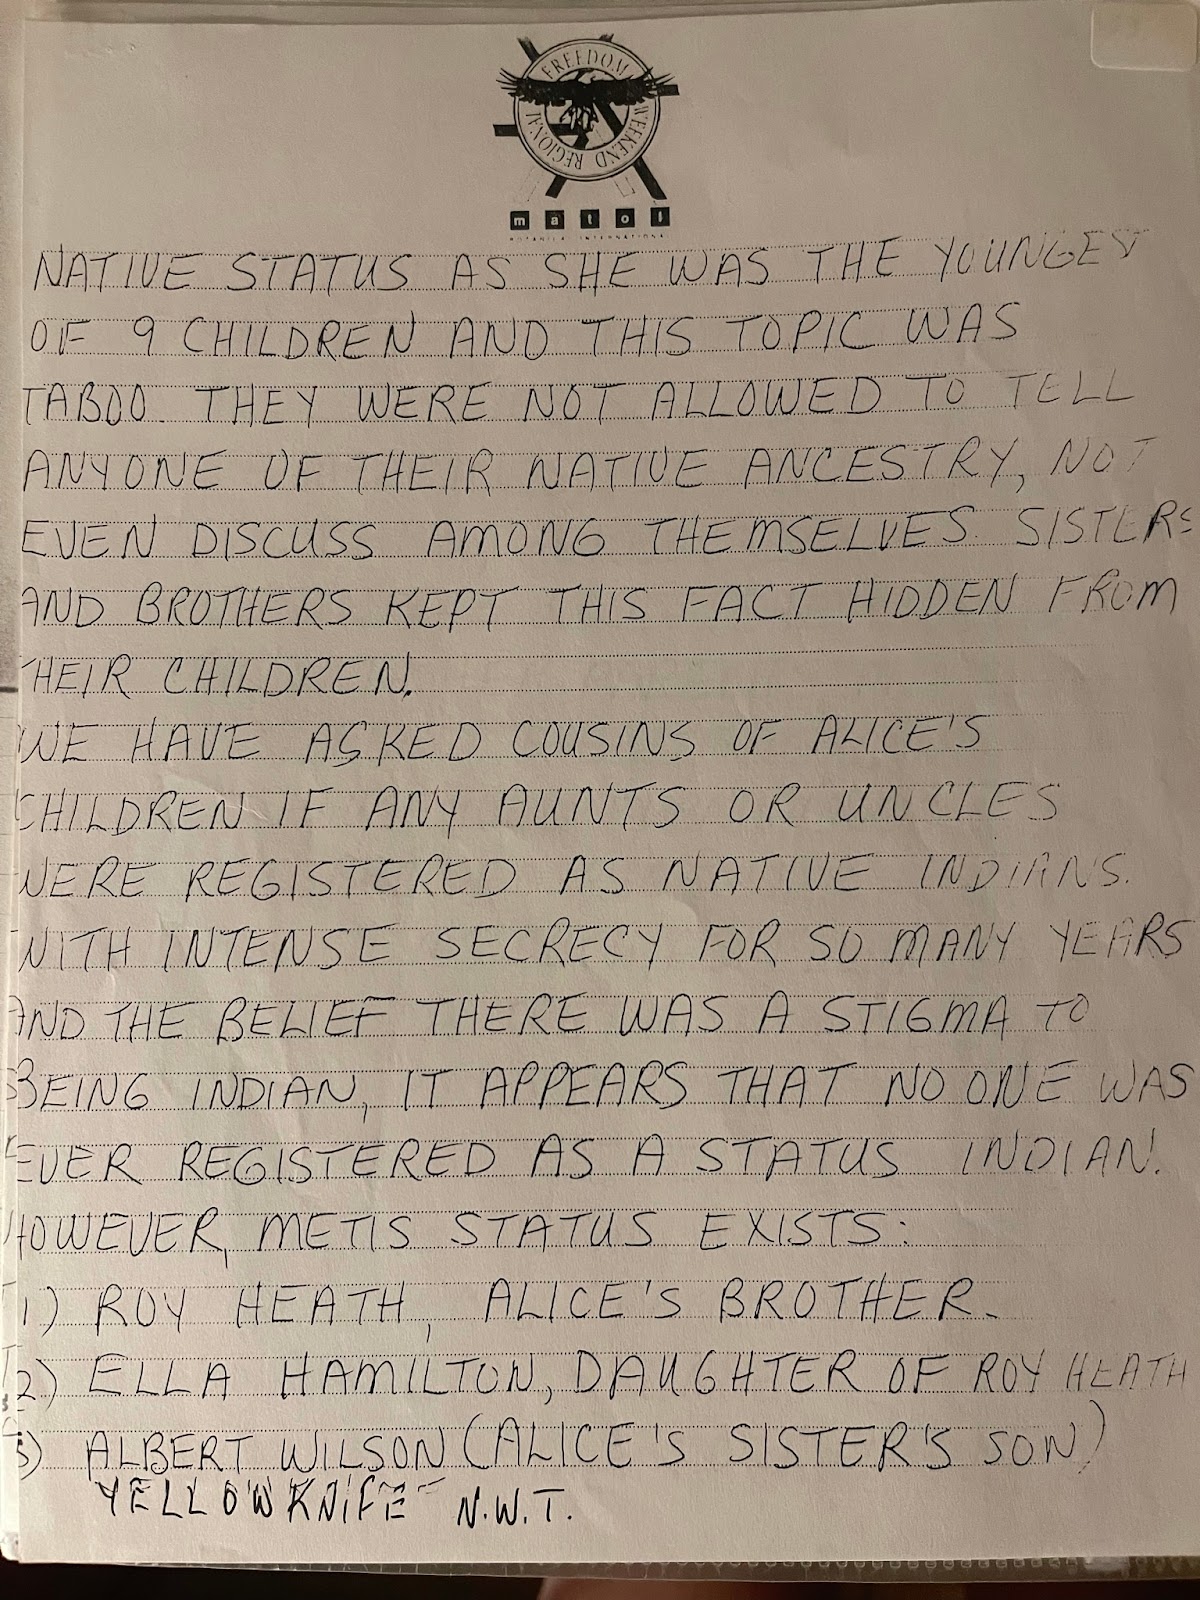 FREEDOM
WEEKEND REGIONAL
matol
BOTANICAL INTERNATIONAL
NATIVE STATUS AS SHE WAS THE YOUNGEST
OF 9 CHILDREN AND THIS TOPIC WAS
TABOO. THEY WERE NOT ALLOWED TO TELL
ANYONE OF THEIR NATIVE ANCESTRY, NOT
EVEN DISCUSS AMONG THEMSELVES. SISTERS
AND BROTHERS KEPT THIS FACT HIDDEN FROM
THEIR CHILDREN.
WE HAVE ASKED COUSINS OF ALICE'S
CHILDREN IF ANY AUNTS OR UNCLES
WERE REGISTERED AS NATIVE INDIANS.
WITH INTENSE SECRECY FOR SO MANY YEARS
AND THE BELIEF THERE WAS A STIGMA TO
BEING INDIAN, IT APPEARS THAT NO ONE WAS
EVER REGISTERED AS A STATUS INDIAN.
HOWEVER, METIS STATUS EXISTS:
1) ROY HEATH, ALICE'S BROTHER.
2) ELLA HAMILTON, DAUGHTER OF ROY HEATH
3) ALBERT WILSON (ALICE'S SISTER'S SON)
YELLOWKNIFE N.W.T.